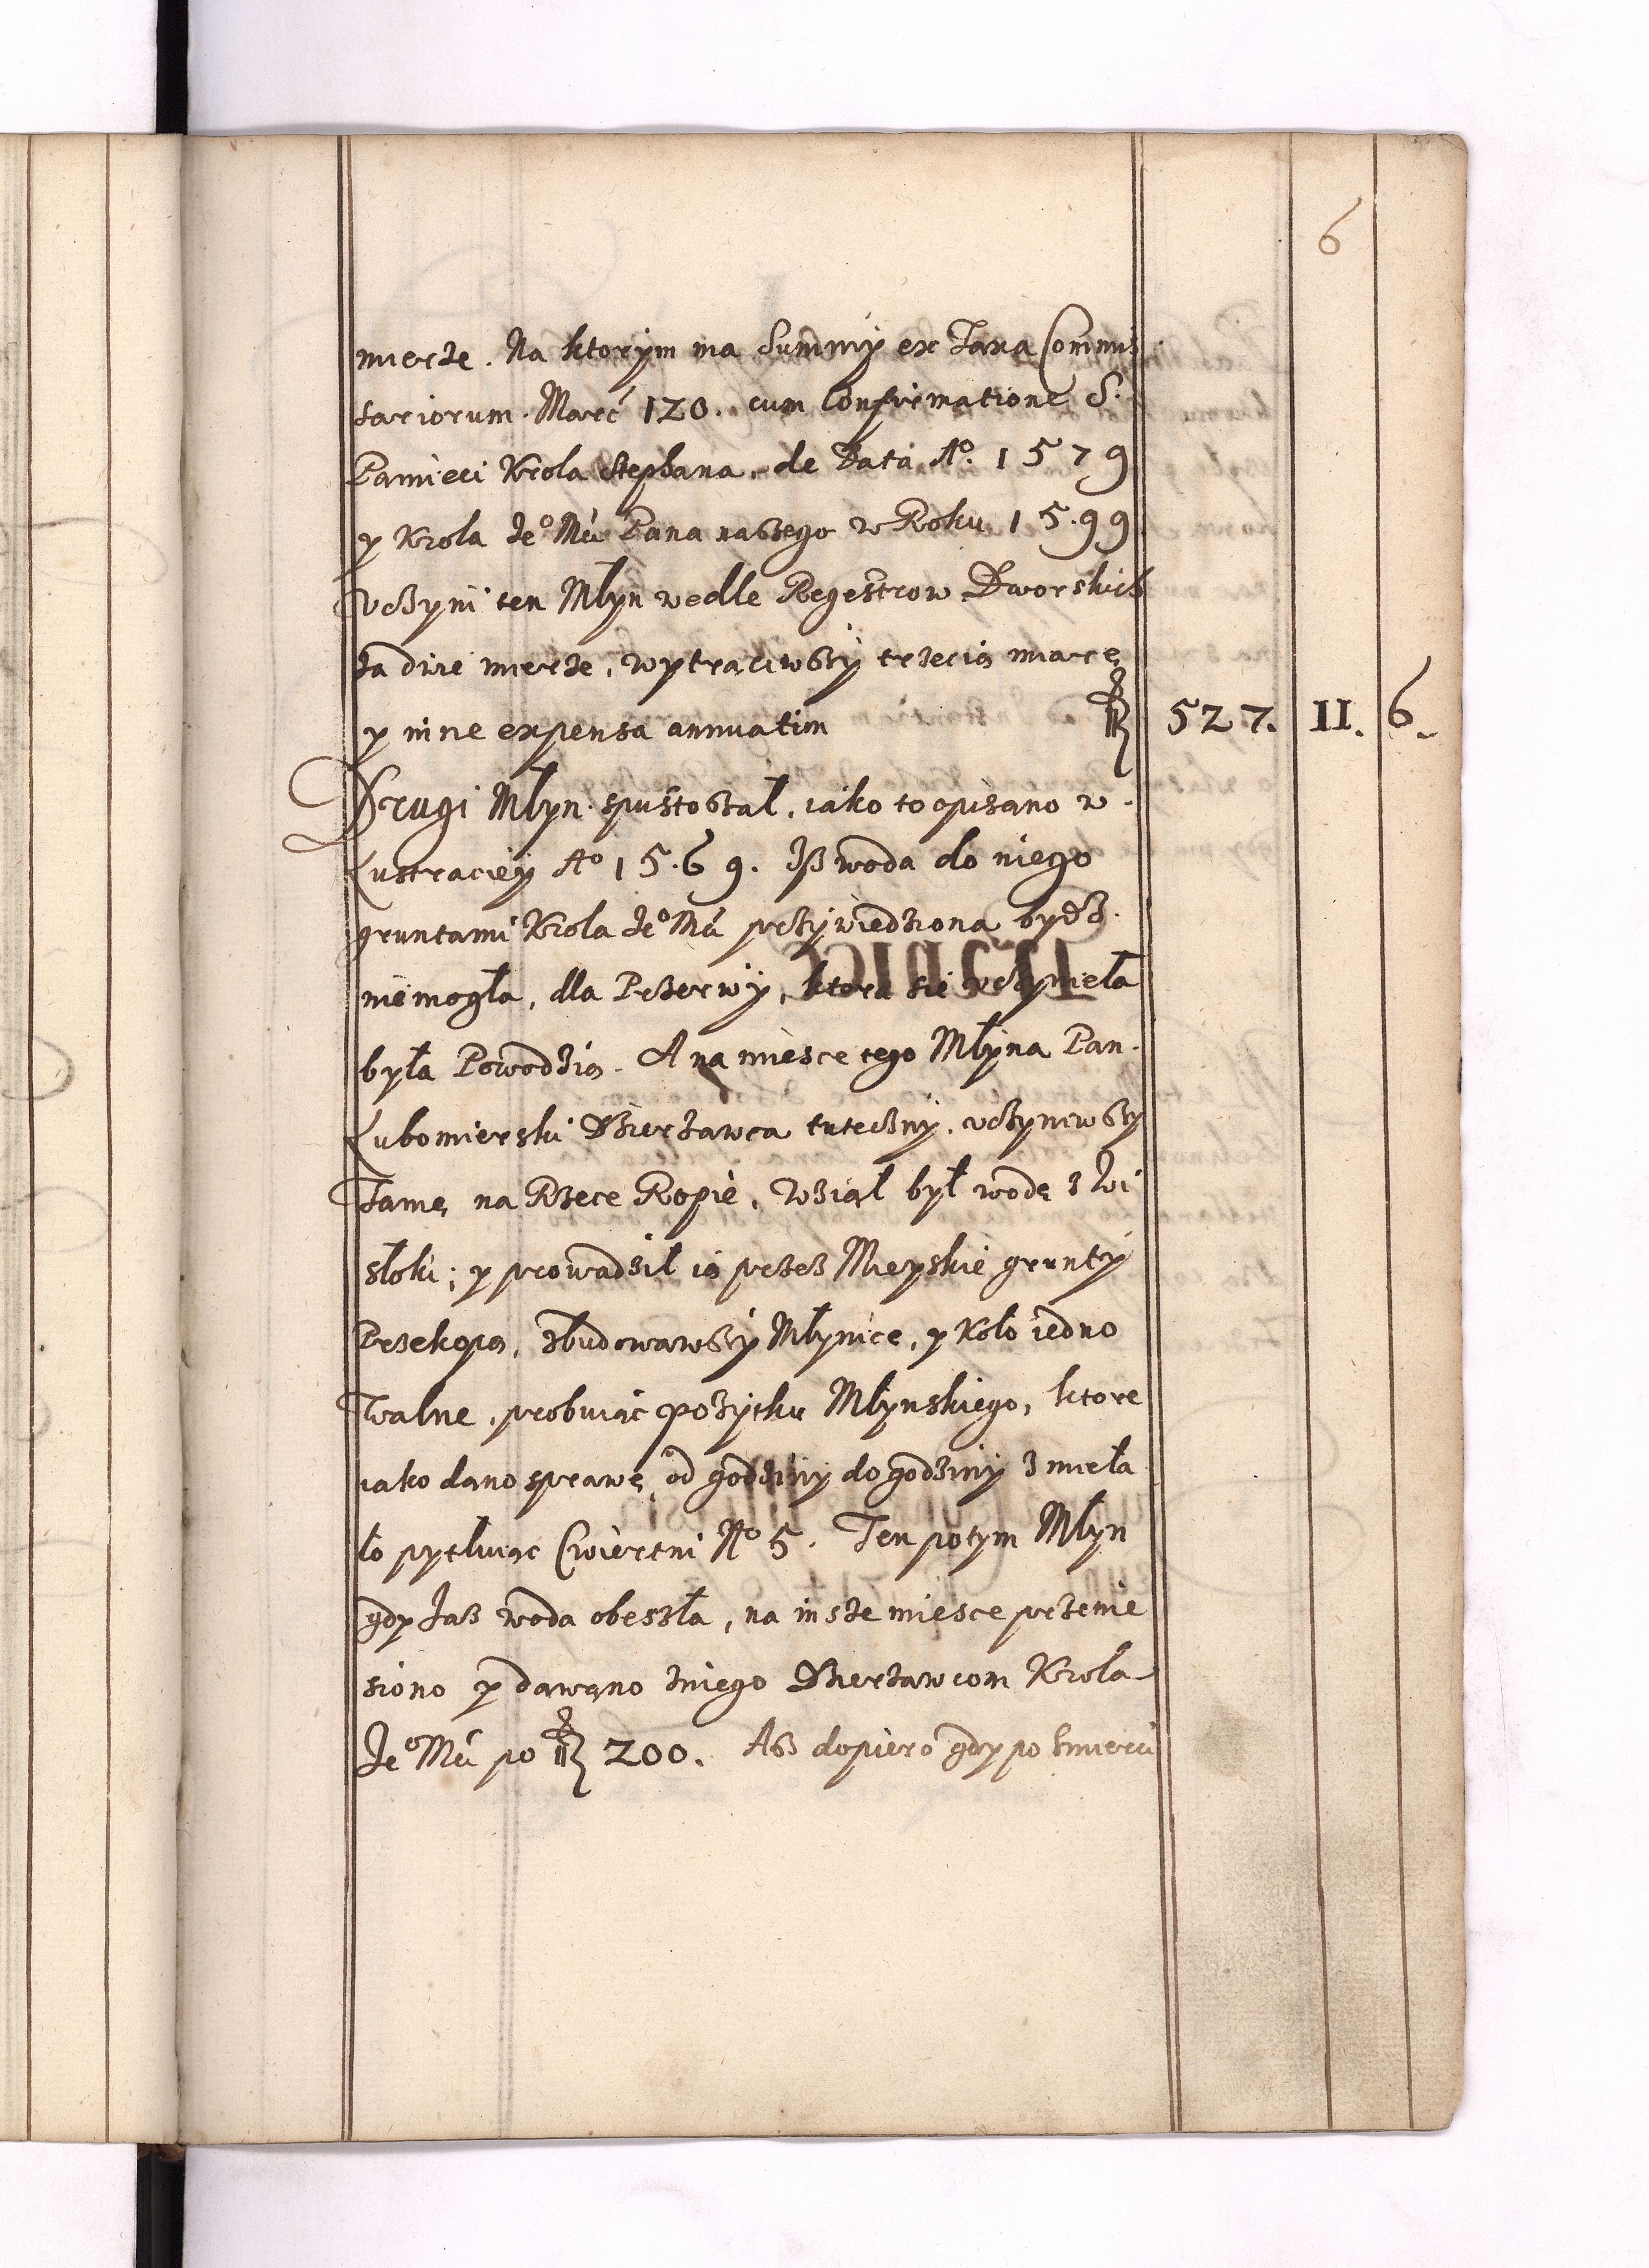 6
mierze. Na ktorym ma Summy ex Taxa Commis
sariorum. Marc 120. cum Confirmatione S.
Pamięci Krola Stephana. de Data Aº. 1579
y Krola Jeº Mći Pana naszego w Roku 15.99
Vczyni ten Młyn wedle Regestrow Dworskich
za dwie mierze, wytrąciwszy trzecią miarę
y inne expensa annuatim 527. II. 6.
Drugi Młyn spustoszał, iako to opisano w
Lustraciey Aº 15.69. Iż woda do niego
gruntami Krola Jeº Mći przywiedziona bydz
niemogła, dla Przerwy, ktora się vczynieła
była Powodzią. A na miesce tego Młyna Pan
Lubomierski Dzierzawca tuteczny, vczyniwszy
Tamę na Rzece Ropie, Wziął był wodę z Wi
słoki; y prowadził ią przez Mieyskie grunty
Przekopą, zbudowawszy Młynice, y Koło iedno
Walne, probuiąc pozytku Młynskiego, ktore
iako dano sprawę od godziny do godziny zmieła
ło pytluiąc Cwiertni Nº 5. Ten potym Młyn
gdy zas woda obeszła, na insze miesce przenie
siono y dawano zniego Dzierzawcom Krola
Jeº Mći po 200. Asz dopiero gdy po smierci